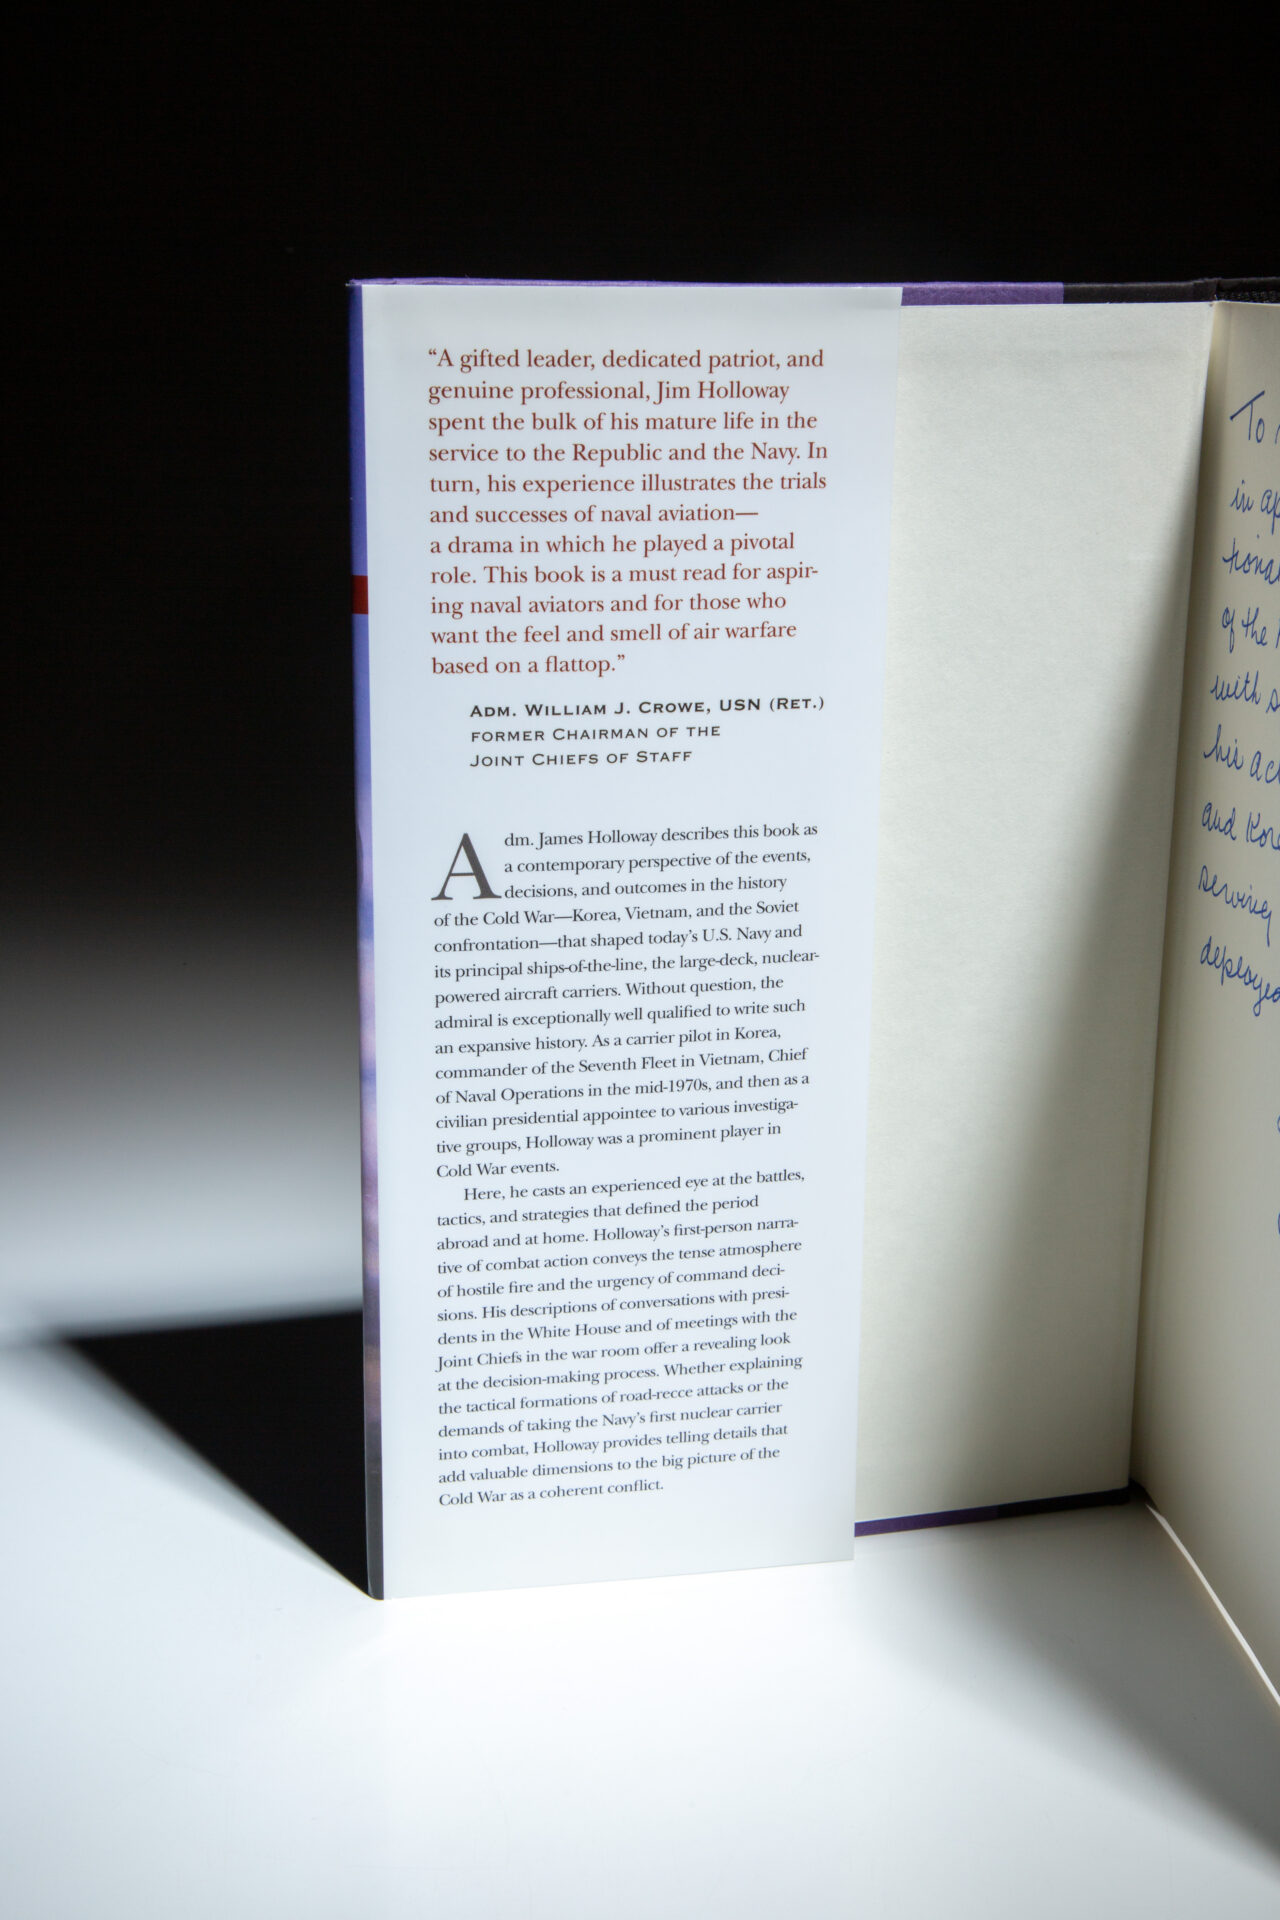 “A gifted leader, dedicated patriot, and
genuine professional, Jim Holloway
spent the bulk of his mature life in the
service to the Republic and the Navy. In
turn, his experience illustrates the trials
and successes of naval aviation—
a drama in which he played a pivotal
role. This book is a must read for aspir-
ing naval aviators and for those who
want the feel and smell of air warfare
based on a flattop.”
ADM. WILLIAM J. CROWE, USN (RET.)
FORMER CHAIRMAN OF THE
JOINT CHIEFS OF STAFF
Adm. James Holloway describes this book as
a contemporary perspective of the events,
decisions, and outcomes in the history
of the Cold War—Korea, Vietnam, and the Soviet
confrontation—that shaped today’s U.S. Navy and
its principal ships-of-the-line, the large-deck, nuclear-
powered aircraft carriers. Without question, the
admiral is exceptionally well qualified to write such
an expansive history. As a carrier pilot in Korea,
commander of the Seventh Fleet in Vietnam, Chief
of Naval Operations in the mid-1970s, and then as a
civilian presidential appointee to various investiga-
tive groups, Holloway was a prominent player in
Cold War events.
Here, he casts an experienced eye at the battles,
tactics, and strategies that defined the period
abroad and at home. Holloway’s first-person narra-
tive of combat action conveys the tense atmosphere
of hostile fire and the urgency of command deci-
sions. His descriptions of conversations with presi-
dents in the White House and of meetings with the
Joint Chiefs in the war room offer a revealing look
at the decision-making process. Whether explaining
the tactical formations of road-recce attacks or the
demands of taking the Navy’s first nuclear carrier
into combat, Holloway provides telling details that
add valuable dimensions to the big picture of the
Cold War as a coherent conflict.
To
in
of the
with
his
and
serving